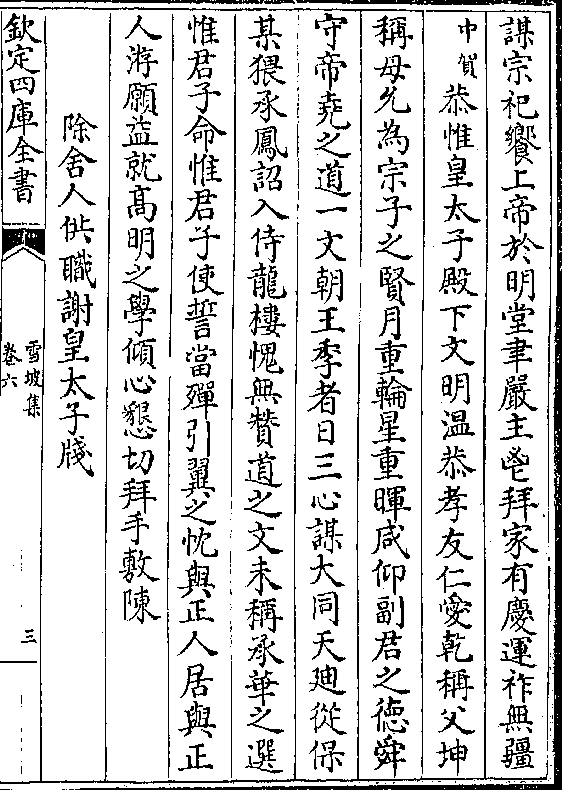 謀宗祀饗上帝於明堂聿嚴主鬯拜家有慶運祚無疆
中賀恭惟皇太子殿下文明温恭孝友仁愛乾稱父坤
稱母允為宗子之賢月重輪星重暉咸仰副君之徳舜
守帝堯之道一文朝王季者日三心謀大同天廸從保
某猥承鳳詔入侍龍樓愧無贊道之文未稱承華之選
惟君子命惟君子使誓當殫引翼之忱與正人居與正
人游願益就髙明之學傾心懇切拜手敷陳
除舍人供職謝皇太子牋
欽定四庫全書
雪坡集
卷六
三